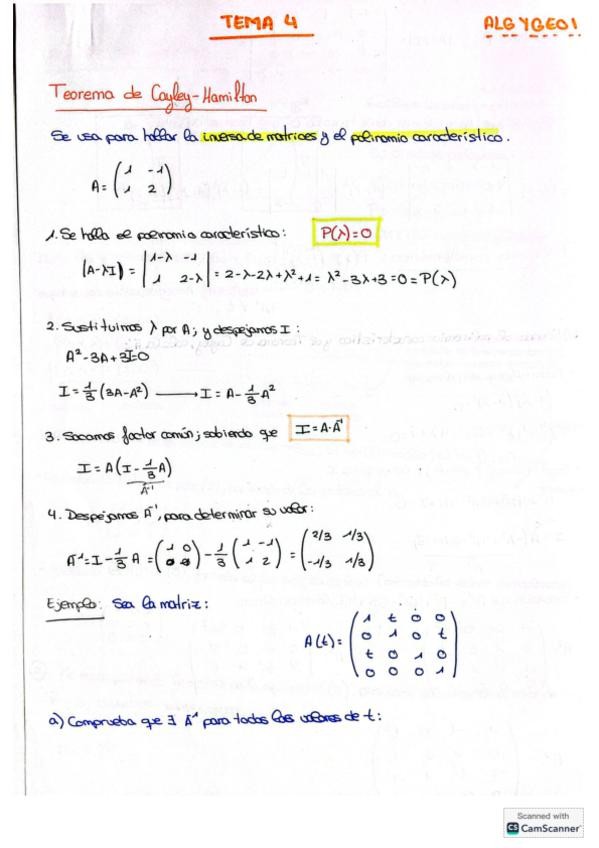 TEMA 4
ALG Y GEO 1
Teorema de Cayley-Hamilton
Se usa para hallar la inversa de matrices y el polinomio característico.
A = ( 1 -1
1 2 )
1. Se halla el polinomio característico: P(λ)=0
|A-λI| = | 1-λ -1
1 2-λ | = 2-λ-2λ+λ²+1 = λ²-3λ+3=0=P(λ)
2. Sustituimos λ por A; y despejamos I:
A²-3A+3I=0
I = 1/3 (3A-A²) ⟶ I = A - 1/3 A²
3. Sacamos factor común; sabiendo que I = A·A⁻¹
I = A(I - 1/3 A)
A⁻¹
4. Despejamos A⁻¹, para determinar su valor:
A⁻¹ = I - 1/3 A = ( 1 0
0 ) - 1/3 ( 1 -1
1 2 ) = ( 2/3 1/3
-1/3 1/3 )
Ejemplo: Sea la matriz:
A(t) = ( 1 t 0 0
0 1 0 t
t 0 1 0
0 0 0 1 )
a) Comprueba que ∃ A⁻¹ para todos los valores de t:
Scanned with
CS CamScanner